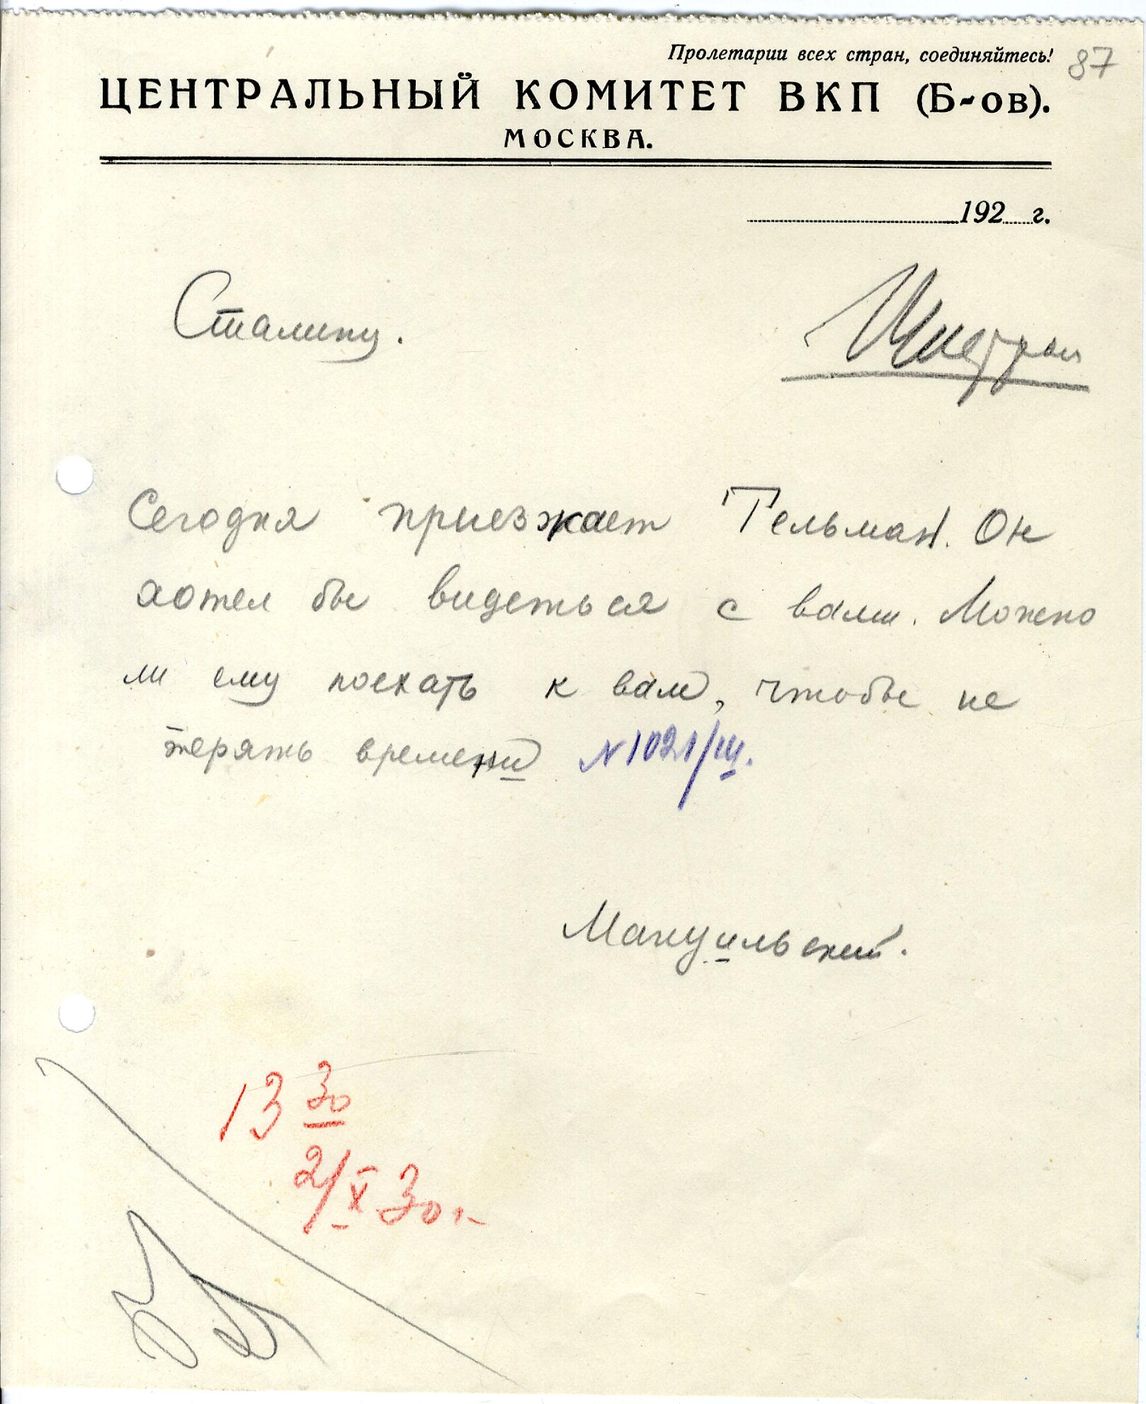 Пролетарии всех стран, соединяйтесь!
87
ЦЕНТРАЛЬНЫЙ КОМИТЕТ ВКП (Б-ов).
МОСКВА.
192 г.
Сталину.
Шифром
Сегодня приезжает Тельман. Он
хотел бы видеться с вами. Можно
ли ему поехать к вам, чтобы не
терять времени №1021/ш.
Мануильский.
13 30
2/X 30 г.